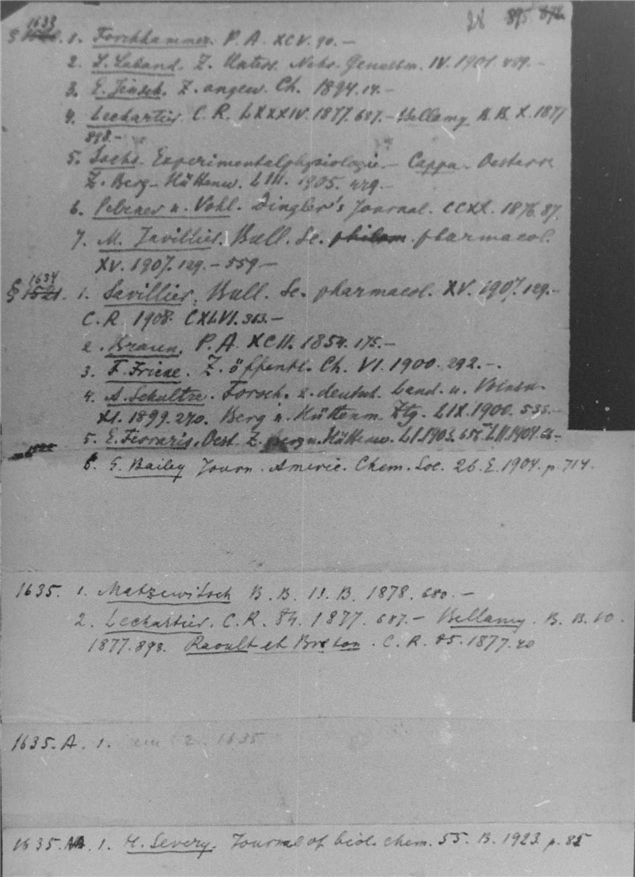 1633
895
§ 1. Forchhammer. P. A. XCV. 90.—
2. Laband. Z. IV. 1901. 489.—
3. E. Jensch. Z. angew. Ch. 1894. 14.—
4. Lechartier C. R. LXXXIV. 1877. 687.— Bellamy B. B. X. 1877
898.—
5. Sachs. Experimentalphysiologie.— Cappa. Oesterr.
Z. Berg- Hüttenw. LIII. 1905. 429.—
6. u. Vohl. Dingler's Journal. CCXX. 1876. 87.
7. M. Javillier. Bull. Sc. philom. pharmacol.
XV. 1907. 129.— 559—
1634
§ 1521. 1. Javillier. Bull. Sc. pharmacol. XV. 1907. 129.—
C. R. 1908. CXLVI. 363.—
2. Braun. P. A. XCII. 1854. 175.—
3. F. Fricke. Z. öffentl. Ch. VI. 1900. 292.—.
4. A. Schultze. Forsch. z. deutsch. Land. u. Volksk.
XI. 1899. 270. Berg u. Hüttenm. Ztg. LIX. 1900. 535—
5. E. Ferraris. Oest. Z. Berg u. Hüttenw. LI. 1903. LII. 1904.
6. E. Bailey Journ. Americ. Chem. Soc. 26. E. 1904. p. 714.
1635. 1. Matzewitsch B. B. 11. B. 1878. 680.—
2. Lechartier. C. R. 84. 1877. 687.— Bellamy. B. B. 10.
1877. 898. Raoult et Breton. C. R. 85. 1877. 40
1635. A. 1. 2. 1635
1635. 1. H. Severy. Journal of biol. chem. 55. B. 1923. p. 85